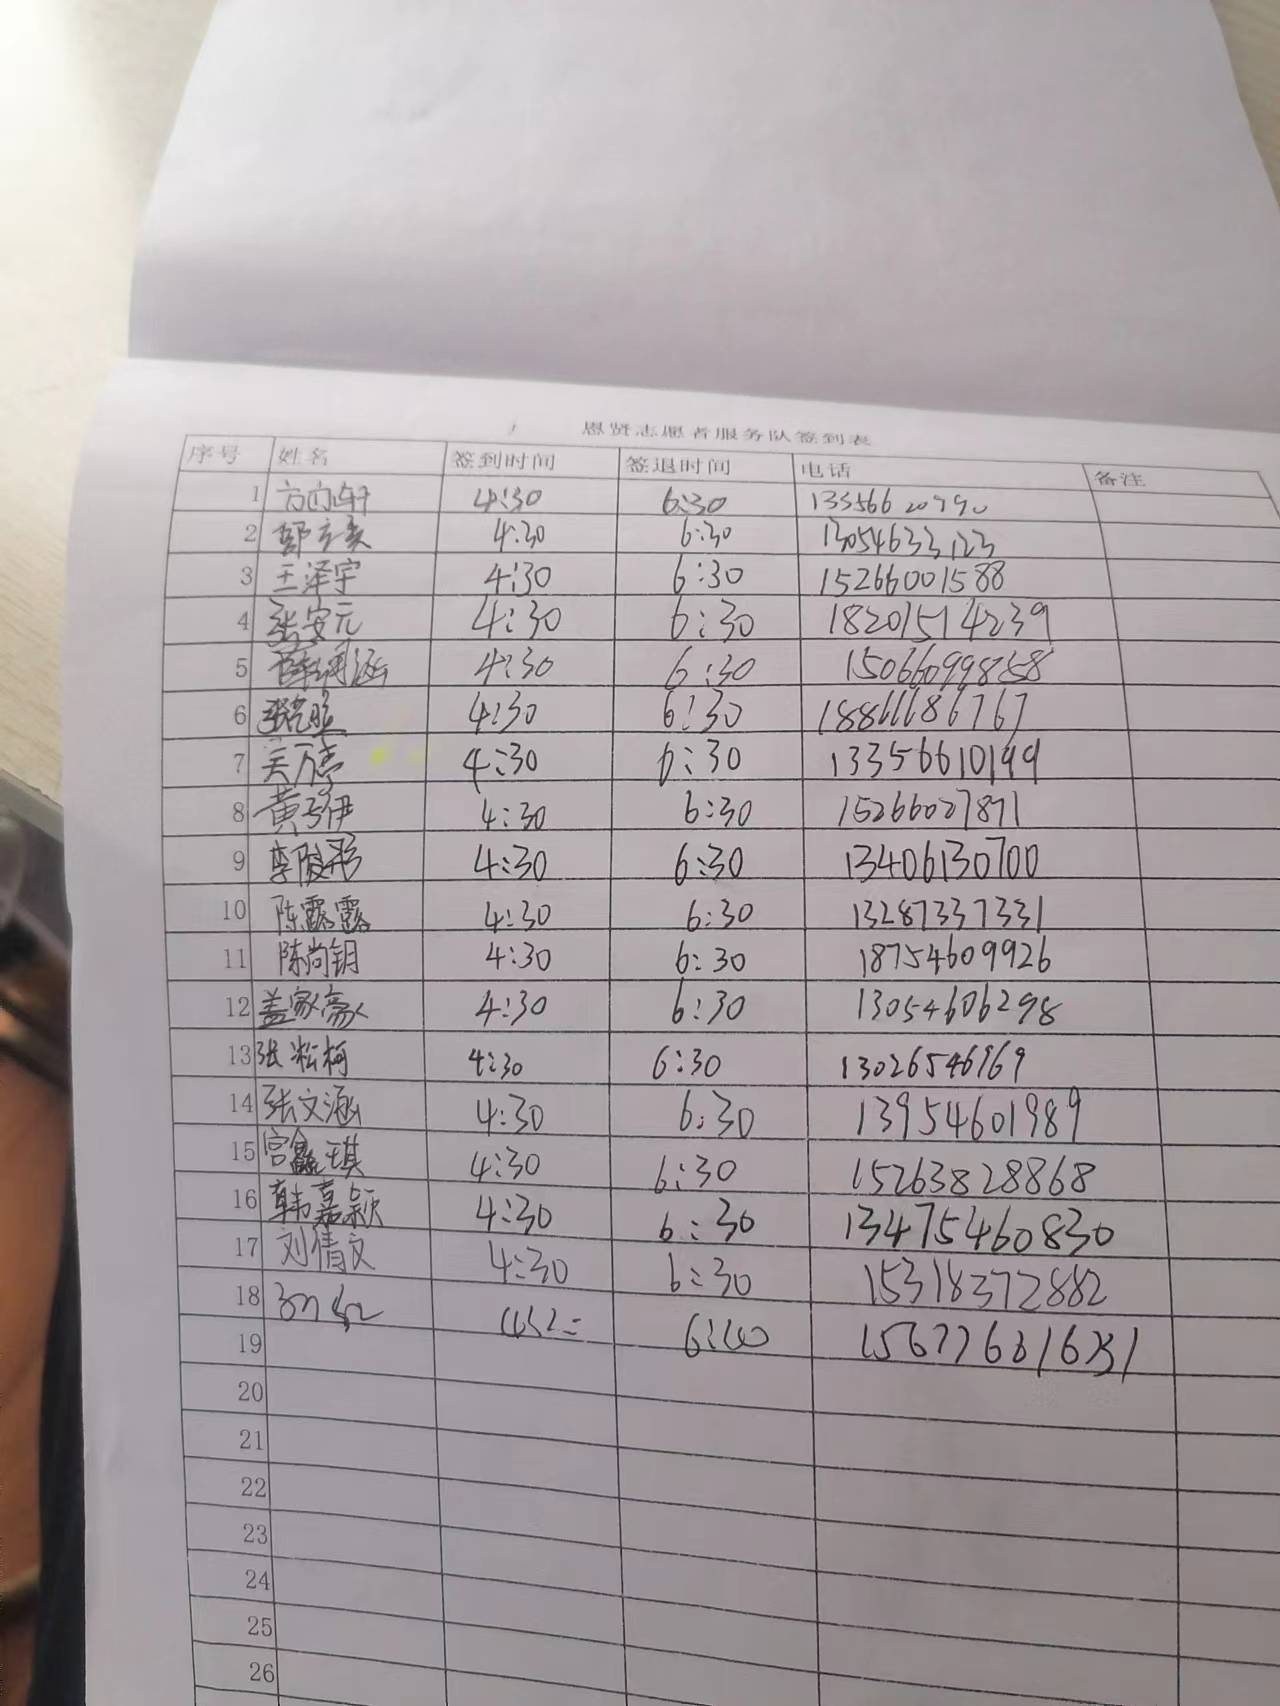 恩贤志愿者服务队签到表
序号 姓名 签到时间 签退时间 电话 备注
1 4:30 6:30 13356620790
2 4:30 6:30 13054633123
3 王泽宇 4:30 6:30 15266001588
4 张安元 4:30 6:30 18201514239
5 4:30 6:30 15066099858
6 4:30 6:30 18866686767
7 4:30 6:30 13356610199
8 4:30 6:30 15266027871
9 4:30 6:30 13406130700
10 陈露露 4:30 6:30 13287337331
11 陈尚钥 4:30 6:30 18754609926
12 盖家豪 4:30 6:30 13054606298
13 张松柯 4:30 6:30 13026546969
14 张文涵 4:30 6:30 13954601989
15 宫鑫琪 4:30 6:30 15263828868
16 韩嘉颖 4:30 6:30 13475460830
17 刘倩文 4:30 6:30 15318372882
18 6:40
19
20
21
22
23
24
25
26